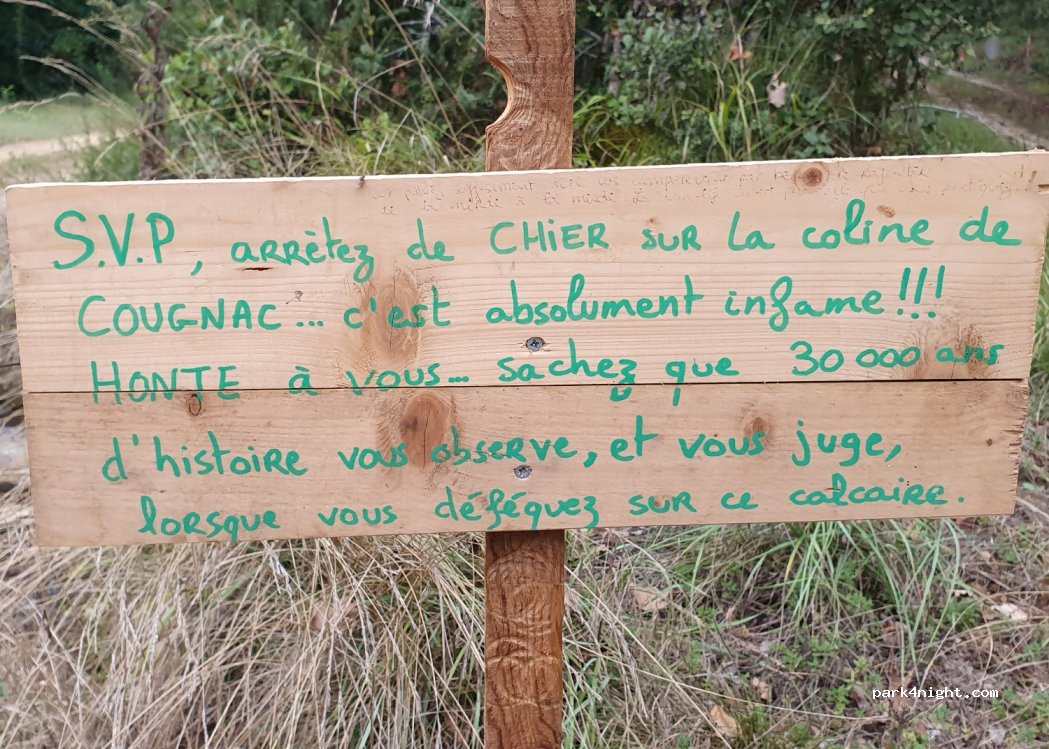 S.V.P, arrêtez de CHiER SUR la coline de
COUGNAC... c'est absolument infame!!!
HONTE à vous... sachez que 30 000 ans
d'histoire vous observe, et vous juge,
lorsque vous déféquez sur ce calcaire.
park4night.com